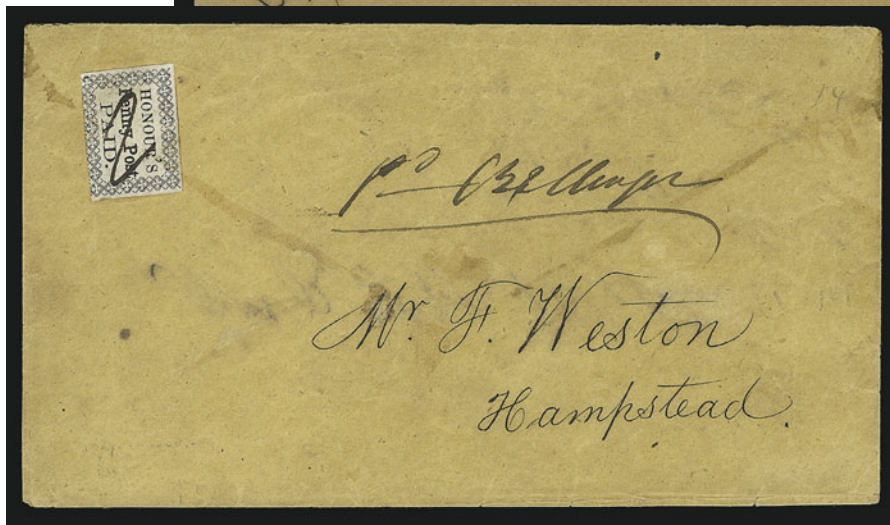 HONOUR'S
Penny Post
PAID.
14
Mr. F. Weston
Hampstead.